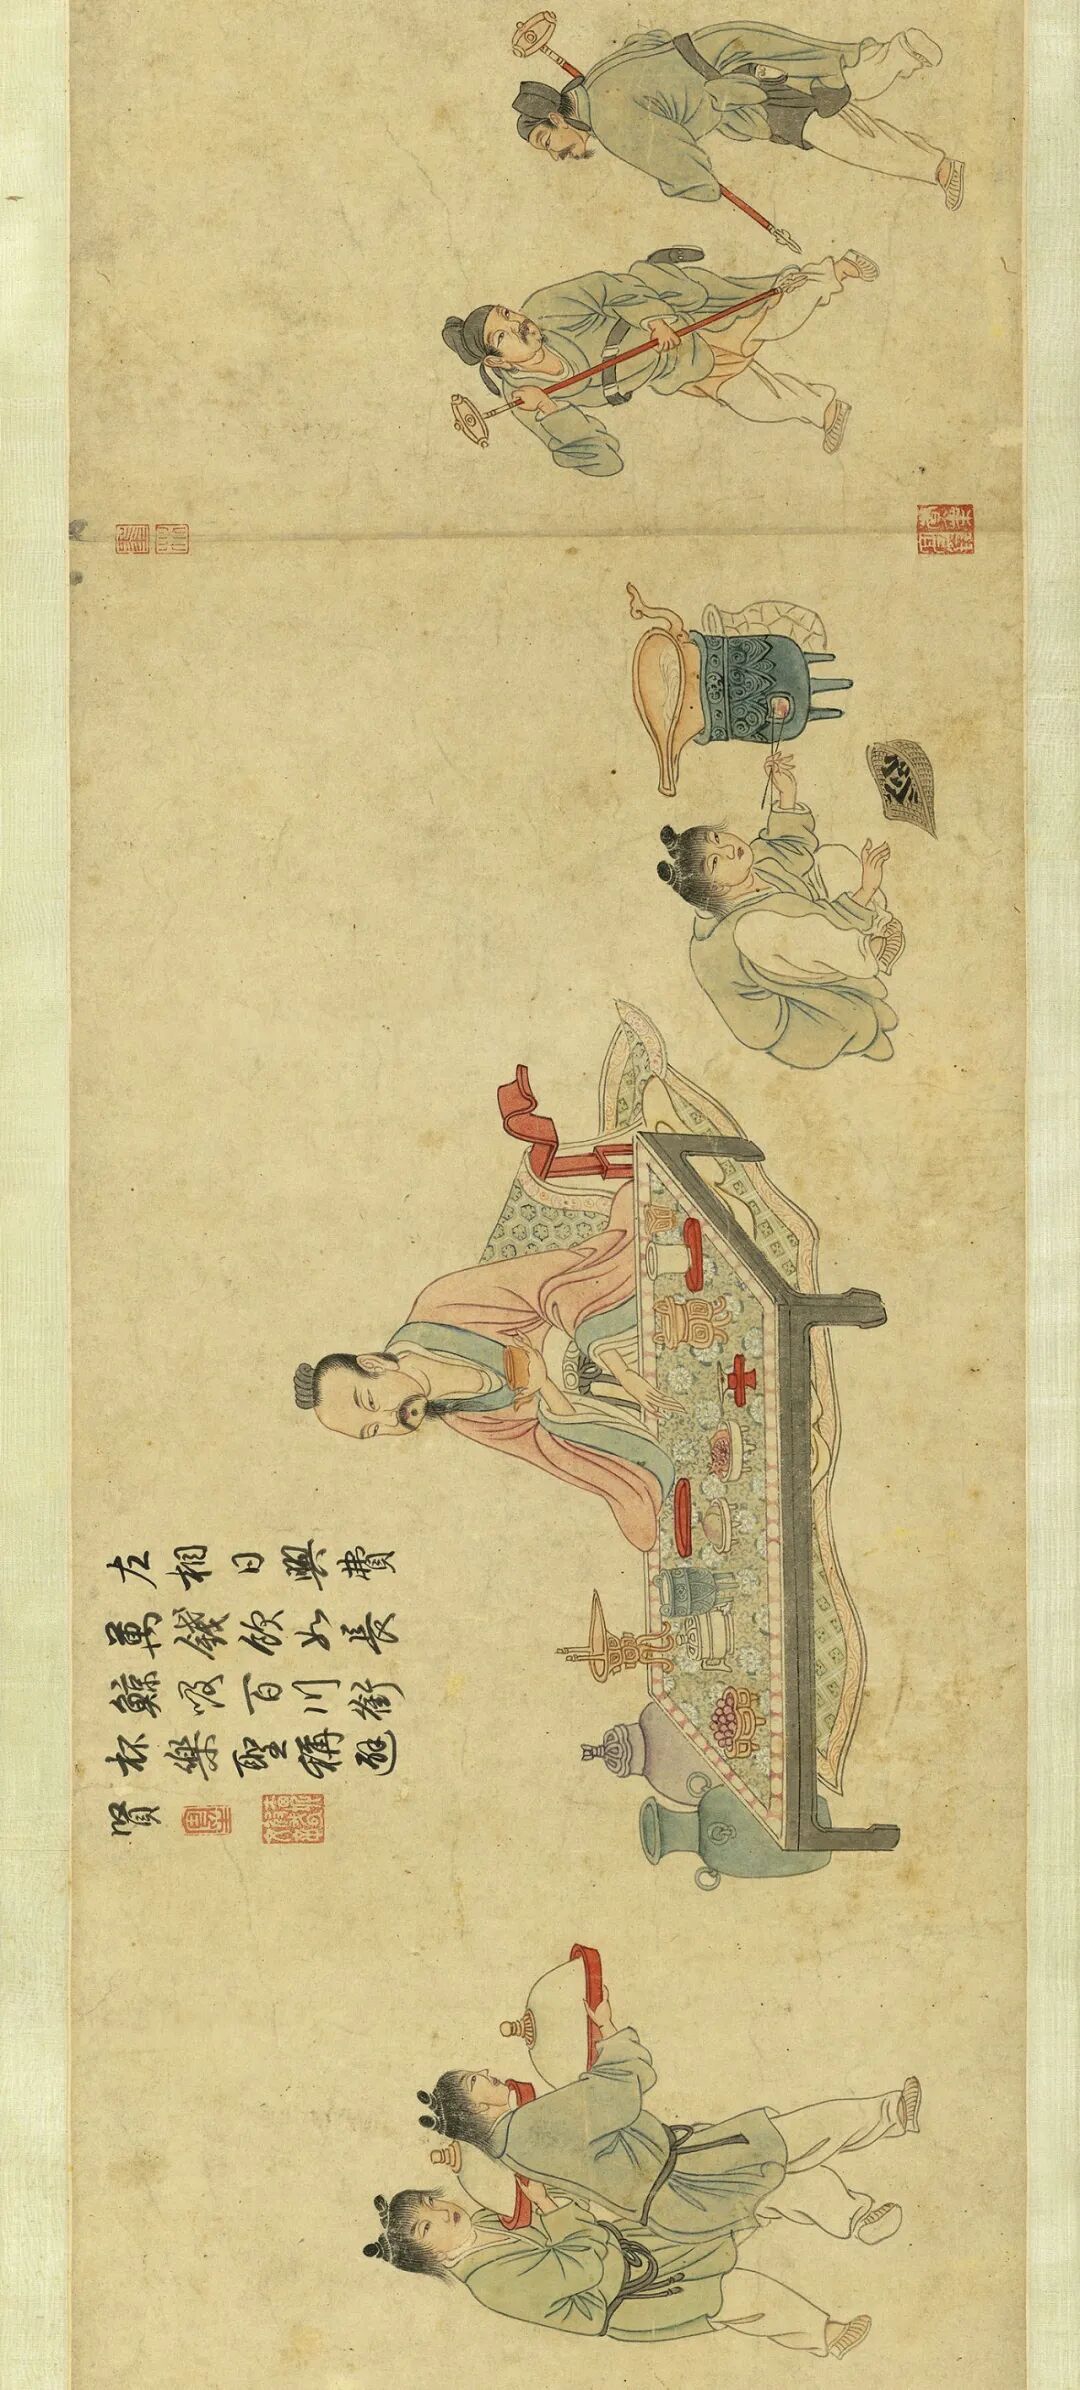 左相日興費
萬錢飲如長
鯨吸百川銜
杯樂聖稱避
賢